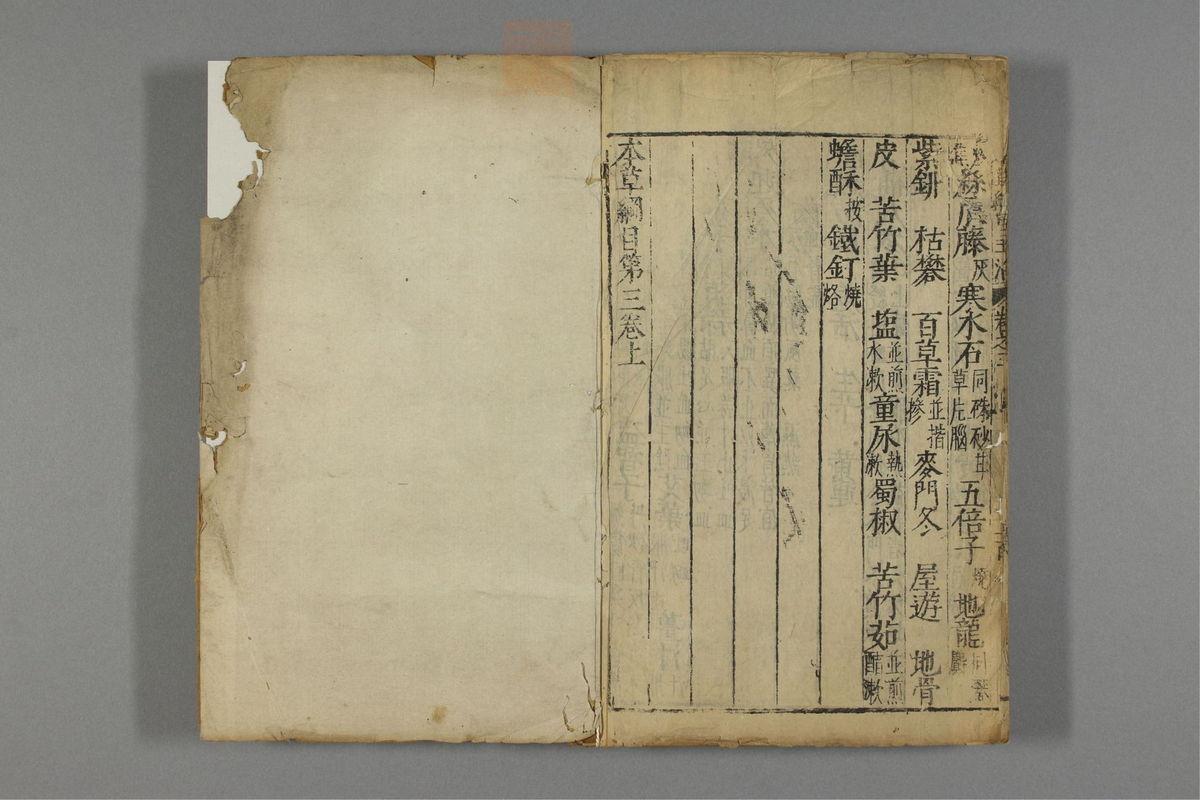 絲瓜藤灰 寒水石同硃砂甘草片腦 五倍子燒 地龍
紫鉚 枯礬 百草霜並揩摻 麥門冬 屋遊 地骨
皮 苦竹葉 塩並煎水漱 童尿熱漱 蜀椒 苦竹茹並煎醋漱
蟾酥按 鐵釘燒烙
本草綱目第三卷上